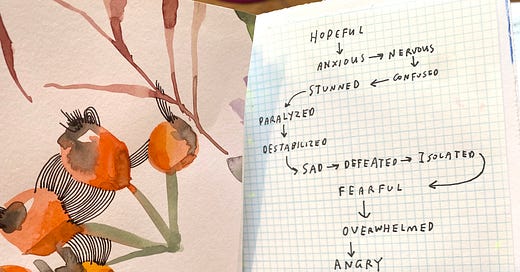 HOPEFUL
ANXIOUS → NERVOUS
STUNNED ← CONFUSED
PARALYZED
DESTABILIZED
SAD → DEFEATED → ISOLATED
FEARFUL
OVERWHELMED
ANGRY